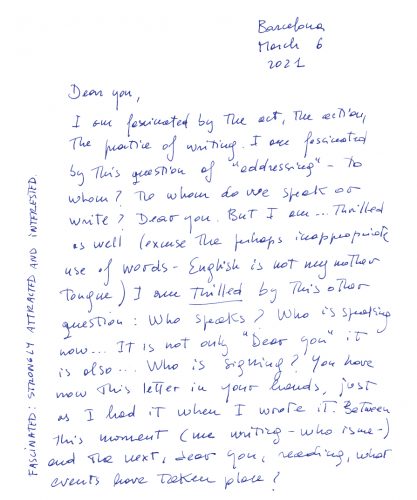 Barcelona
March 6
2021
Dear you,
I am fascinated by the act, the action,
the practice of writing. I am fascinated
by this question of "addressing" - to
whom? To whom do we speak or
write? Dear you. But I am... thrilled
as well (excuse the perhaps inappropriate
use of words - English is not my mother
tongue) I am thrilled by this other
question: Who speaks? Who is speaking
now... It is not only "Dear you" it
is also... Who is signing? You have
now this letter in your hands, just
as I had it when I wrote it. Between
this moment (me writing - who is me -)
and the next, dear you, reading, what
events have taken place?
FASCINATED: STRONGLY ATTRACTED AND INTERESTED.